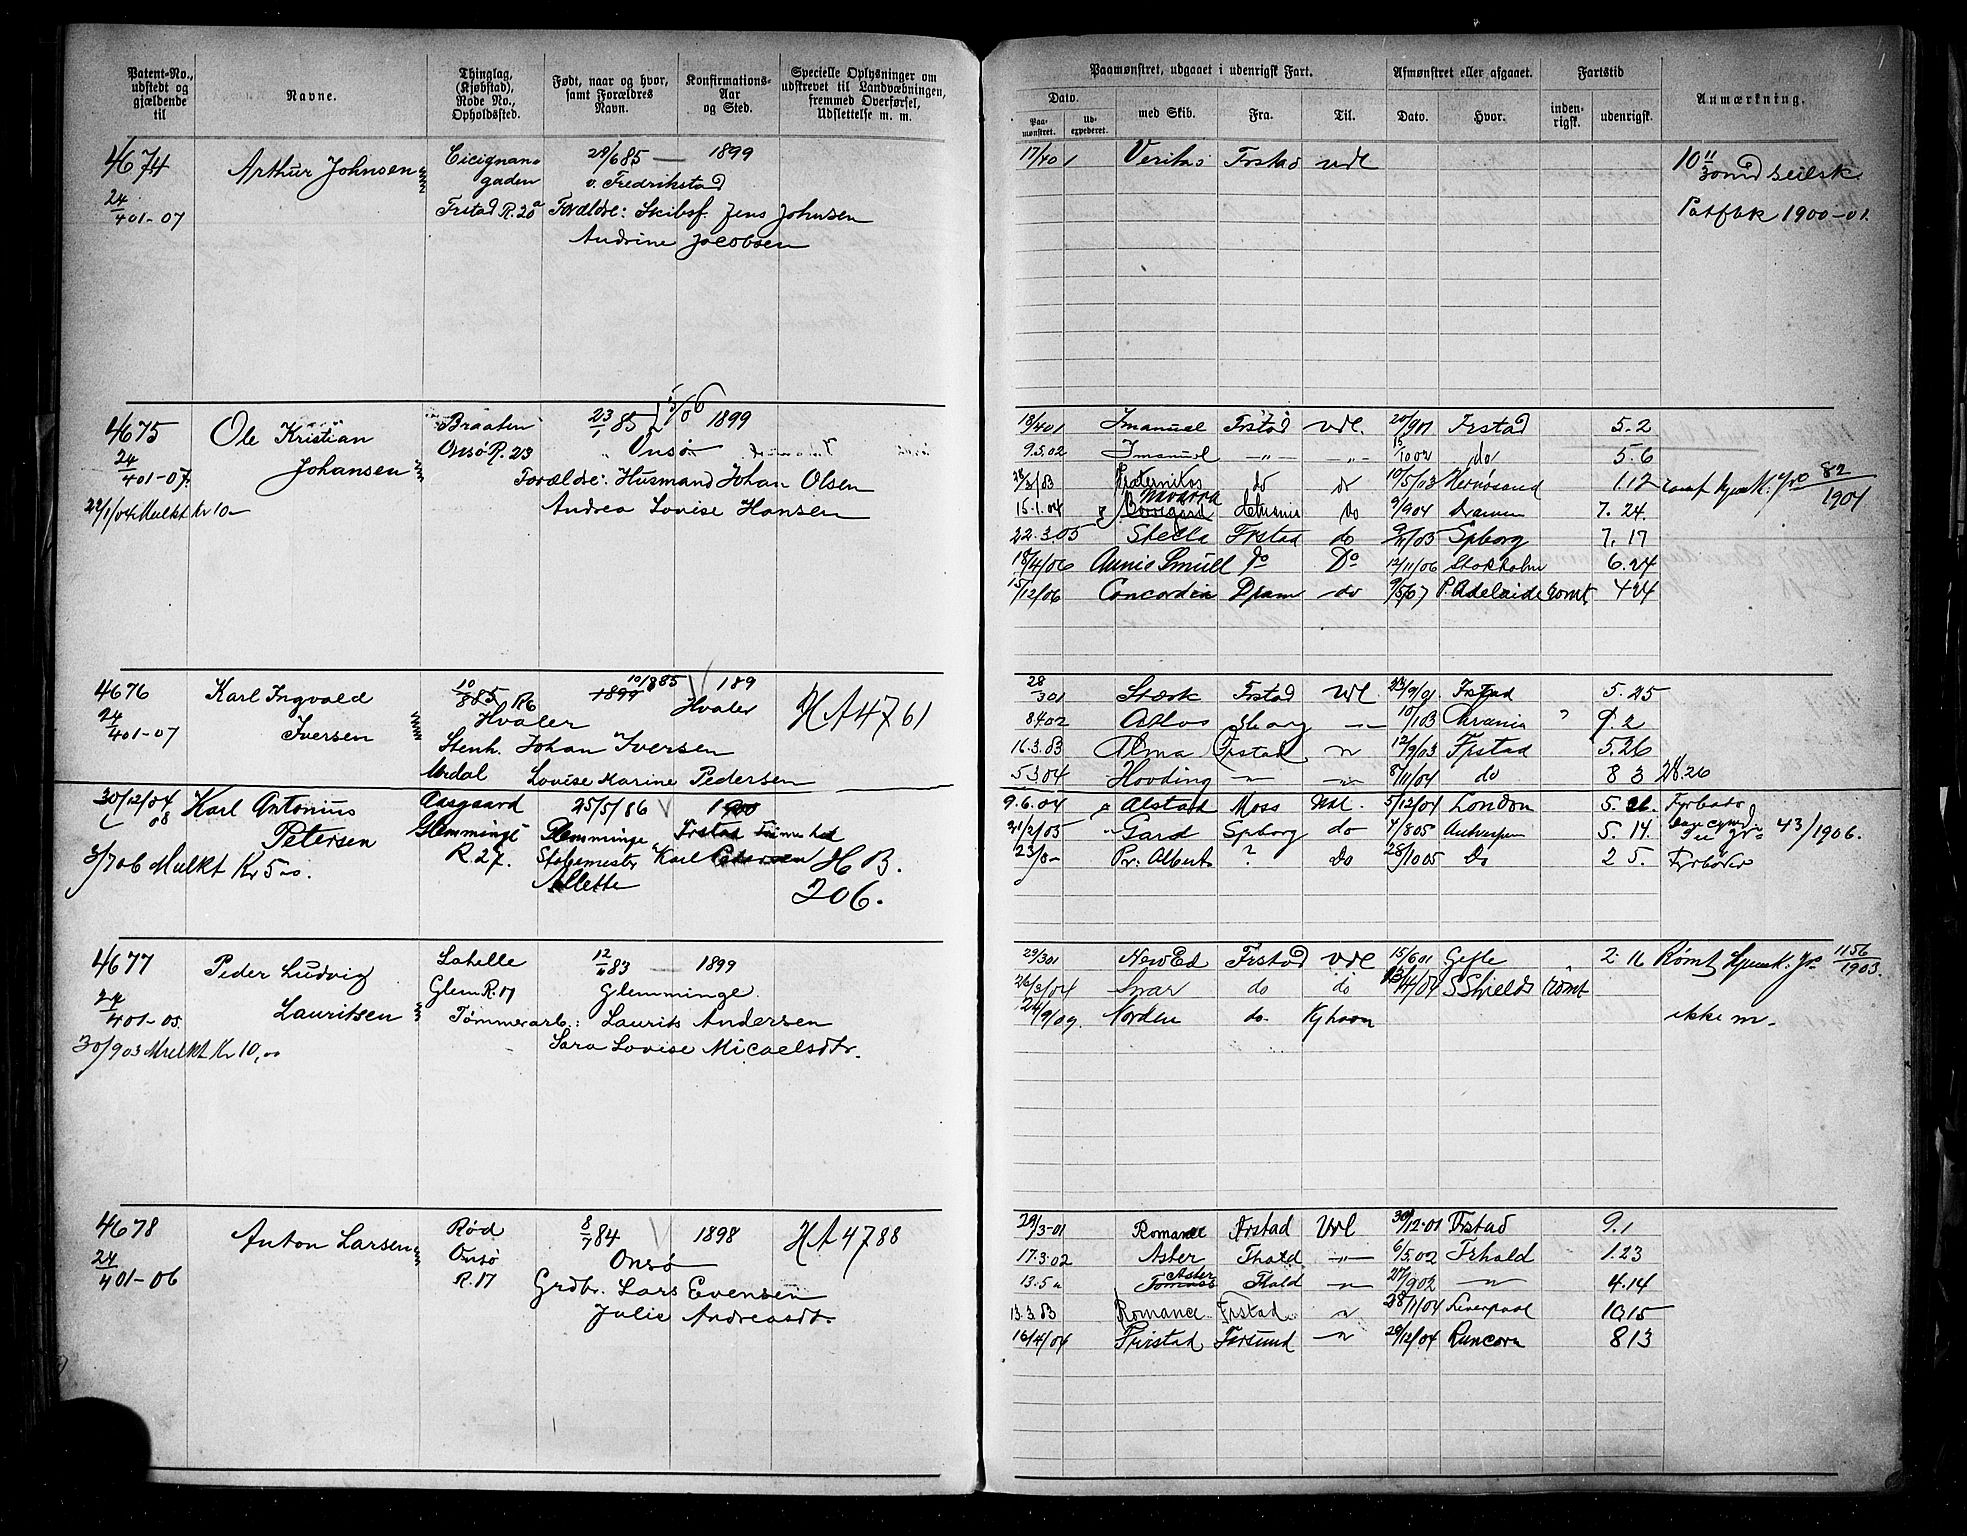 Patent-No., udstedt og gjældende til
Navne.
Thinglag, (Kjøbstad), Rode No., Opholdssted.
Født, naar og hvor, samt Forældres Navn.
Konfirmations-Aar og Sted.
Specielle Oplysninger om udskrevet til Landvæbningen, fremmed Overførsel, Udslettelse m. m.
Paamønstret, udgaaet i udenrigsk Fart.
Dato.
Paa-mønstret.
Ud-expederet.
med Skib.
Fra.
Til.
Afmønstret eller afgaaet.
Dato.
Hvor.
Fartstid
inden-rigsk.
udenrigsk.
Anmærkning.
4674 Arthur Johnsen Cicignon- 29/6 85 — 1899
gaden v. Fredrikstad
24/4 01-07 Frstad R. 20a Forældre: Skibsf. Jens Johnsen
Andrine Jacobsen
17/4 01 Veritas Frstad Udl
Patfbk 1900-01.
4675 Ole Kristian Braaten 23/1 85 5/06 1899
Johansen Onsø R. 23 Onsø
24/4 01-07. Forældre: Husmand Johan Olsen
22/1/04 Mulkt Kr 10 — Andrea Lovise Hansen
18/4 01 Imanuel Frstad Udl. 20/9 01 Frstad 5. 2
9.5.02 Imanuel —„— —„— 15/10 02 do 5. 6
Fraternitas do do 10/5/03 Hernøsand 1.12 rømt 82/1904
15.1.04 Navarra do 9/9 04 Dramen 7. 24.
22.3.05 Stella Frstad do Spborg 7. 17
18/4/06 Annie Smull Do Do 12/11/06 Stokholm 6.24
15/12/06 Concordia Dram do 9/5/07 P. Adelaide rømt 4 24
4676 Karl Ingvald 10/8 85 R6 1899 10/8 85 189
Iversen Hvaler Hvaler HA4761
24/4 01-07 Stenh. Johan Iversen
Urdal Lovise Marine Pedersen
28/3 01 Stærk Frstad Udl 23/9/01 Frstad 5. 25
8.4.02 Athos 10/1 03 9. 2
16.3.03 Alma Frstad „ 12/9/03 Frstad 5.26
5.3.04 Hovding „ —„— 8/11/04 do 8 3 28.26
30/12/04 Karl Antonius Aasgaard 25/5/86 1900
08 Petersen Glemminge Glemminge Frstad
R. 27. Karl Petersen H B.
3/7 06 Mulkt Kr 5 — Allette 206.
9.6.04 Alstad Moss Udl. 5/12/04 London 5. 26. Fyrbøder
21/2/05 Gard Spborg do 4/8 05 Antwerpen 5. 14. 43/1906.
23/8 — Pr: Albert ? do 28/10 05 Do 2 5. Fyrbøder
4677 Peder Ludvig Lahelle 12/6 83 — 1899
Lauritsen Glem R. 17 Glemminge
24/4 01-05. Tømmerarb: Laurits Andersen
30/9 03 Mulkt Kr 10,00 Sara Lovise Micaelsdtr.
29/3 01 NewEd Frstad Udl 15/6 01 Gefle 2. 16 Rømt 1156/1903.
26/3/04 Svar do do S Shields rømt
24/9/09. Norden do. Kjhavn ikke m.
4678 Anton Larsen Rød 8/7 84 1898 HA4788
24/4 01-06 Onsø Onsø
R. 17 Grdbr. Lars Evensen
Julie Andreasdtr.
29/3-01 Romance Frstad Udl 30/12.01 Frstad 9.1
17.3.02 Aster Fhald —„— 6/5.02 Frhald 1.23
13.5 „ Aster Fhald —„— 27/9 02 —„— 4.14
13.3.03 Romance Frstad „ 28/11/04 Liverpool 10.15
16/4/04 Pristad Farsund —„— 29/12/04 Runcorn 8 13